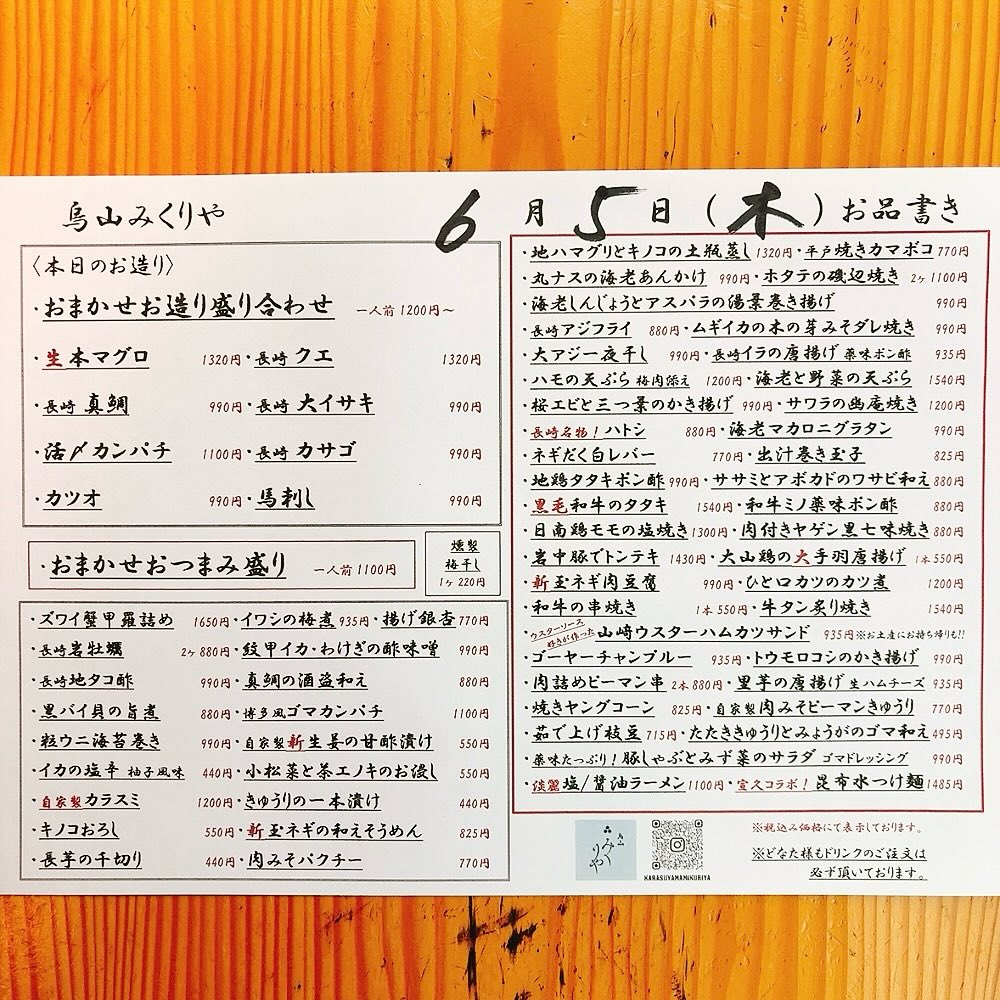 烏山みくりや
6月5日(木)お品書き
〈本日のお造り〉
・おまかせお造り盛り合わせ 一人前1200円〜
・生本マグロ 1320円・長崎クエ 1320円
・長崎 真鯛 990円・長崎 大イサキ 990円
・活〆カンパチ 1100円・長崎 カサゴ 990円
・カツオ 990円・馬刺し 990円
・おまかせおつまみ盛り 一人前1100円
燻製
梅干し
1ヶ220円
・ズワイ蟹甲羅詰め 1650円・イワシの梅煮 935円・揚げ銀杏 770円
・長崎岩牡蠣 2ヶ880円・紋甲イカ・わけぎの酢味噌 990円
・長崎地タコ酢 990円・真鯛の酒盗和え 880円
・黒バイ貝の旨煮 880円・博多風ゴマカンパチ 1100円
・粒ウニ海苔巻き 990円・自家製新生姜の甘酢漬け 550円
・イカの塩辛 柚子風味 440円・小松菜と茶エノキのお浸し 550円
・自家製カラスミ 1200円・きゅうりの一本漬け 440円
・キノコおろし 550円・新玉ネギの和えそうめん 825円
・長芋の千切り 440円・肉みそパクチー 770円
・地ハマグリとキノコの土瓶蒸し 1320円・平戸焼きカマボコ 770円
・丸ナスの海老あんかけ 990円・ホタテの磯辺焼き 2ヶ1100円
・海老しんじょうとアスパラの湯葉巻き揚げ 990円
・長崎アジフライ 880円・ムギイカの木の芽みそダレ焼き 990円
・大アジ一夜干し 990円・長崎イラの唐揚げ 薬味ポン酢 935円
・ハモの天ぷら 梅肉添え 1200円・海老と野菜の天ぷら 1540円
・桜エビと三つ葉のかき揚げ 990円・サワラの幽庵焼き 1200円
・長崎名物!ハトシ 880円・海老マカロニグラタン 990円
・ネギだく白レバー 770円・出汁巻き玉子 825円
・地鶏タタキポン酢 990円・ササミとアボカドのワサビ和え 880円
・黒毛和牛のタタキ 1540円・和牛ミノ薬味ポン酢 880円
・日南鶏モモの塩焼き 1300円・肉付きヤゲン黒七味焼き 880円
・岩中豚でトンテキ 1430円・大山鶏の大手羽唐揚げ 1本550円
・新玉ネギ肉豆腐 990円・ひと口カツのカツ煮 1200円
・和牛の串焼き 1本550円・牛タン炙り焼き 1540円
・ウスターソース好きが作った 山崎ウスターハムカツサンド 935円※お土産にお持ち帰りも!!
・ゴーヤーチャンプルー 935円・トウモロコシのかき揚げ 990円
・肉詰めピーマン串 2本880円・里芋の唐揚げ 生ハムチーズ 935円
・焼きヤングコーン 825円・自家製肉みそピーマンきゅうり 770円
・茹で上げ枝豆 715円・たたききゅうりとみょうがのゴマ和え 495円
・薬味たっぷり!豚しゃぶとみず菜のサラダ ゴマドレッシング 990円
・淡麗塩/醤油ラーメン 1100円・宣スコラボ!昆布水つけ麺 1485円
みくりや
KARASUYAMAMIKURIYA
※税込み価格にて表示しております。
※どなた様もドリンクのご注文は
必ず頂いております。